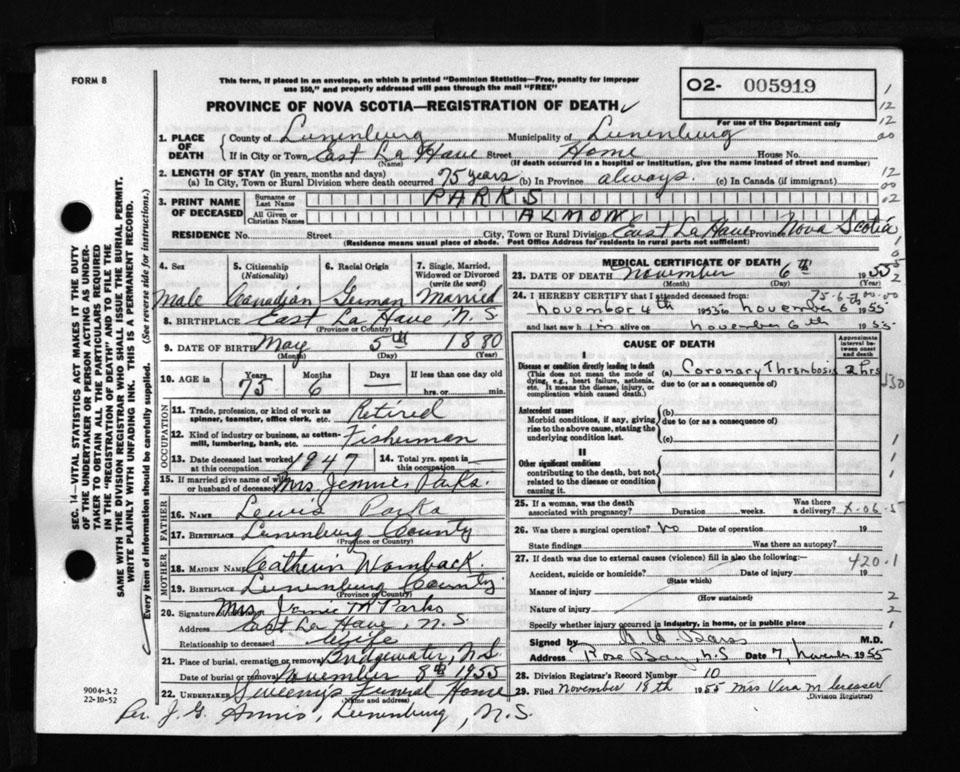 FORM 8
This form, if placed in an envelope, on which is printed "Dominion Statistics—Free, penalty for improper
use $50," and properly addressed will pass through the mail "FREE"
O2- 005919
For use of the Department only
PROVINCE OF NOVA SCOTIA—REGISTRATION OF DEATH
1. PLACE OF DEATH
County of Lunenburg Municipality of Lunenburg
If in City or Town East La Have Street Home House No.
(Name) (If death occurred in a hospital or institution, give the name instead of street and number)
2. LENGTH OF STAY (in years, months and days)
(a) In City, Town or Rural Division where death occurred 75 years (b) In Province always. (c) In Canada (if immigrant)
3. PRINT NAME OF DECEASED
Surname or Last Name PARKS
All Given or Christian Names ALMON
RESIDENCE No. Street City, Town or Rural Division East La Have Province Nova Scotia
(Residence means usual place of abode. Post Office Address for residents in rural parts not sufficient)
4. Sex 5. Citizenship (Nationality) 6. Racial Origin 7. Single, Married, Widowed or Divorced (write the word)
Male Canadian German Married
8. BIRTHPLACE East La Have, N.S.
(Province or Country)
9. DATE OF BIRTH May 5th 1880
(Month) (Day) (Year)
10. AGE in Years Months Days If less than one day old
75 6 — hrs. or min.
OCCUPATION
11. Trade, profession, or kind of work as spinner, teamster, office clerk, etc. Retired
12. Kind of industry or business, as cotton-mill, lumbering, bank, etc. Fisherman
13. Date deceased last worked at this occupation 1947 14. Total yrs. spent in this occupation —
15. If married give name of wife or husband of deceased Mrs Jennie Parks.
FATHER
16. NAME Lewis Parks
17. BIRTHPLACE Lunenburg County
(Province or Country)
MOTHER
18. MAIDEN NAME Catherin Wamback.
19. BIRTHPLACE Lunenburg County
(Province or Country)
20. Signature Mrs. Jennie M Parks
Address East La Have, N.S.
Relationship to deceased Wife
21. Place of burial, cremation or removal Bridgewater, N.S.
Date of burial or removal November 8th 1955
22. UNDERTAKER Sweeny's Funeral Home
(Name and address)
Per. J. G. Annis, Lunenburg, N.S.
9004-3.2
22-10-52
MEDICAL CERTIFICATE OF DEATH
23. DATE OF DEATH November 6th 1955
(Month) (Day) (Year)
24. I HEREBY CERTIFY that I attended deceased from:
November 4th 1955 to November 6 1955
and last saw him alive on November 6th 1955.
CAUSE OF DEATH
Approximate interval between onset and death
I
Disease or condition directly leading to death
(This does not mean the mode of dying, e.g., heart failure, asthenia, etc. It means the disease, injury, or complication which caused death.)
(a) Coronary Thrombosis 2 hrs
due to (or as a consequence of)
Antecedent causes
Morbid conditions, if any, giving rise to the above cause, stating the underlying condition last.
(b)
due to (or as a consequence of)
(c)
II
Other significant conditions
contributing to the death, but not related to the disease or condition causing it.
25. If a woman, was the death associated with pregnancy? Duration weeks. Was there a delivery?
26. Was there a surgical operation? No Date of operation 19
State findings Was there an autopsy?
27. If death was due to external causes (violence) fill in also the following:—
Accident, suicide or homicide? Date of injury 19
(State which)
420.1
Manner of injury
(How sustained)
Nature of injury
Specify whether injury occurred in industry, in home, or in public place
Signed by M.D.
Address Rose Bay, N.S Date 7, November 1955
28. Division Registrar's Record Number 10
29. Filed November 18th 1955 Mrs Vera M
(Division Registrar)
SEC. 14—VITAL STATISTICS ACT MAKES IT THE DUTY
OF THE UNDERTAKER OR PERSON ACTING AS UNDER-
TAKER TO OBTAIN ALL THE PARTICULARS REQUIRED
IN THE "REGISTRATION OF DEATH" AND TO FILE THE
SAME WITH THE DIVISION REGISTRAR WHO SHALL ISSUE THE BURIAL PERMIT.
WRITE PLAINLY WITH UNFADING INK. THIS IS A PERMANENT RECORD.
Every item of information should be carefully supplied. (See reverse side for instructions.)